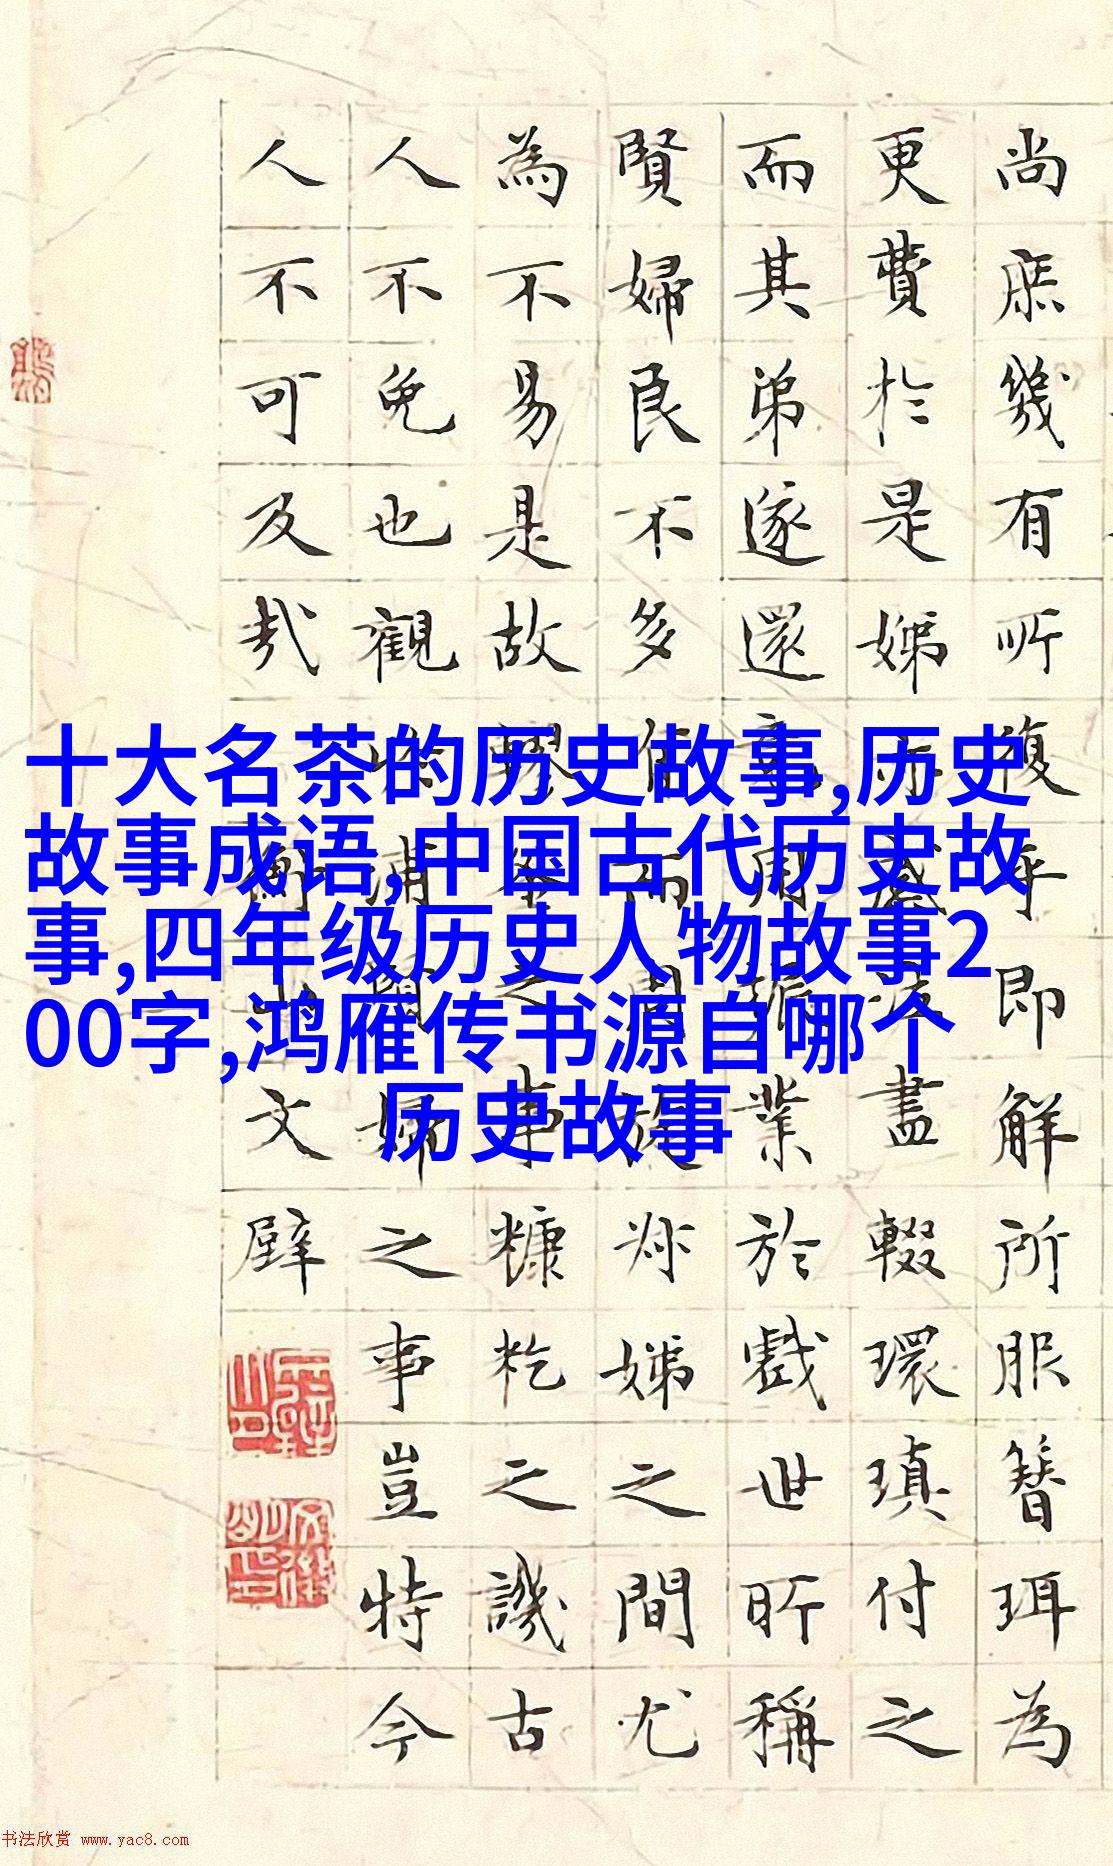 十大名茶的历史故事,历史
故事成语,中国古代历史故
事,四年级历史人物故事2
00字,鸿雁传书源自哪个
历史故事
尚庶幾有所復乎即解所服簪珥為
更費於是娣盡輟環瑱付之
而其弟遂還業於戲世所稱
賢婦良不多娣之間尤
為不易是故之事糠籺之譏古
人不免也觀婦之事豈特今
人不可及哉文壁
书法欣赏 www.yac8.com